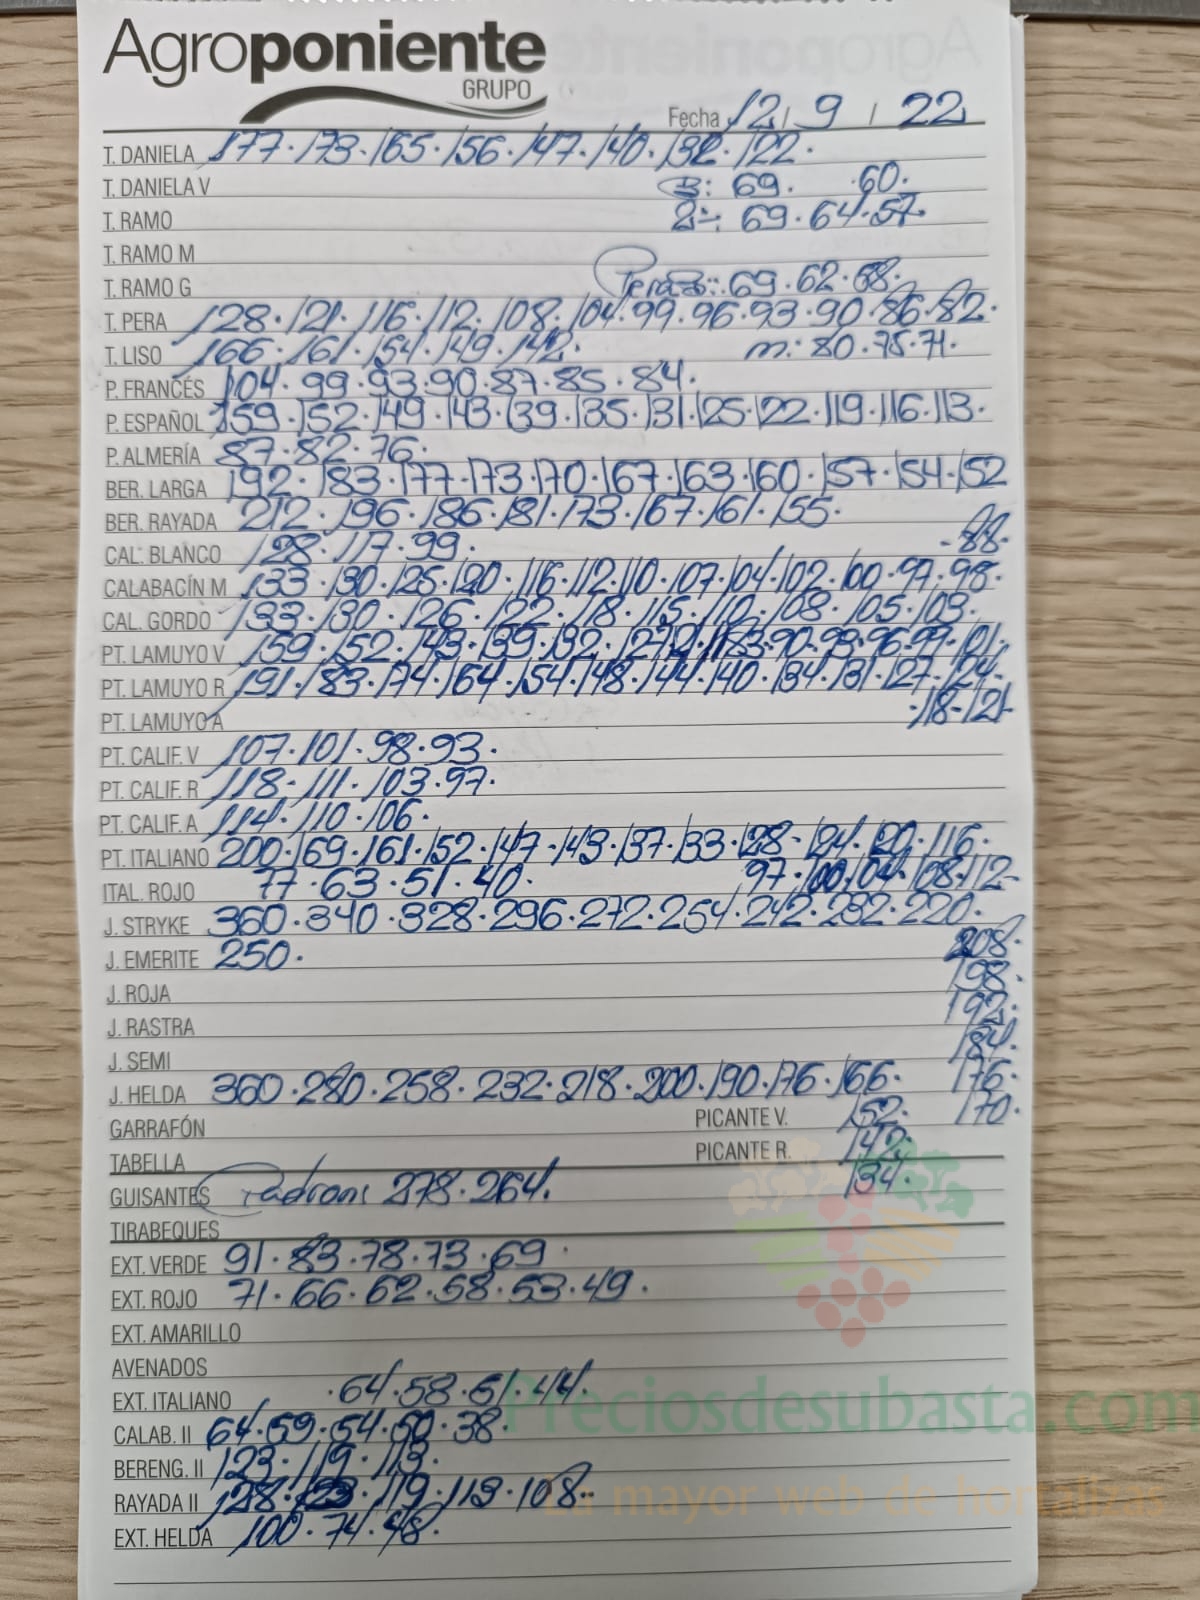 Agroponiente
GRUPO
Fecha 12 / 9 / 22
T. DANIELA 177·173·165·156·147·140·132·122·
T. DANIELA V B: 69· 60·
T. RAMO 2ª: 69·64·57·
T. RAMO M
T. RAMO G Pera B: 69·62·58·
T. PERA 128·121·116·112·108·104·99·96·93·90·86·82·
T. LISO 166·161·154·149·142· m: 80·75·71·
P. FRANCÉS 104·99·93·90·87·85·84·
P. ESPAÑOL 159·152·149·143·139·135·131·125·122·119·116·113·
P. ALMERÍA 87·82·76·
BER. LARGA 192·183·177·173·170·167·163·160·157·154·152
BER. RAYADA 212·196·186·181·173·167·161·155·
CAL. BLANCO 128·117·99· -88-
CALABACÍN M 133·130·125·120·116·112·110·107·104·102·100·97·98·
CAL. GORDO 133·130·126·122·118·115·110·108·105·103·
PT. LAMUYO V 159·152·143·139·132·127· 90·93·96·99·101·
PT. LAMUYO R 191·183·174·164·154·148·144·140·134·131·127·124·
PT. LAMUYO A ·118·121
PT. CALIF. V 107·101·98·93·
PT. CALIF. R 118·111·103·97·
PT. CALIF. A 114·110·106·
PT. ITALIANO 200·169·161·152·147·143·137·133·128·124·120·116·
ITAL. ROJO 77·63·51·40· 97·100·104·108·112-
J. STRYKE 360·340·328·296·272·254·242·232·220·
J. EMERITE 250· 208·
198·
J. ROJA
192·
J. RASTRA
184·
J. SEMI
J. HELDA 360·280·258·232·218·200·190·176·166· 176·
GARRAFÓN PICANTE V. 152· 170·
TABELLA PICANTE R. 142·
GUISANTES Padron: 278·264· 134·
TIRABEQUES
EXT. VERDE 91·83·78·73·69·
EXT. ROJO 71·66·62·58·53·49·
EXT. AMARILLO
AVENADOS
EXT. ITALIANO ·64·58·51·44·
Preciosdesubasta.com
CALAB. II 64·59·54·50·38·
BERENG. II 123·119·113·
RAYADA II 128·123·119·113·108·
La mayor web de hortalizas
EXT. HELDA 100·74·48·